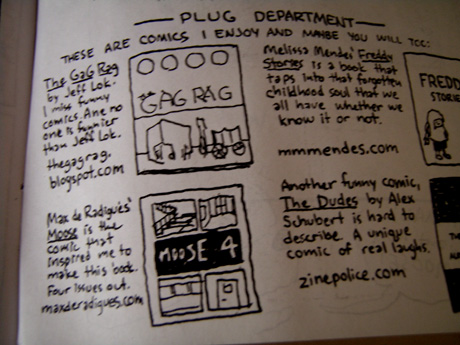 PLUG DEPARTMENT
THESE ARE COMICS I ENJOY AND MAYBE YOU WILL TOO:
The GaG Rag
by Jeff Lok.
I miss funny
comics. And no
one is funnier
than Jeff Lok.
thegagrag.
blogspot.com
GAG RAG
Melissa Mendes' Freddy
Stories is a book that
taps into that forgotten
childhood soul that we
all have whether we
know it or not.
mmmendes.com
FREDD
STORIE
Max de Radigues'
Moose is the
comic that
inspired me to
make this book.
Four issues out.
maxderadigues.com
MOOSE 4
Another funny comic,
The Dudes by Alex
Schubert is hard to
describe. A unique
comic of real laughs.
zinepolice.com